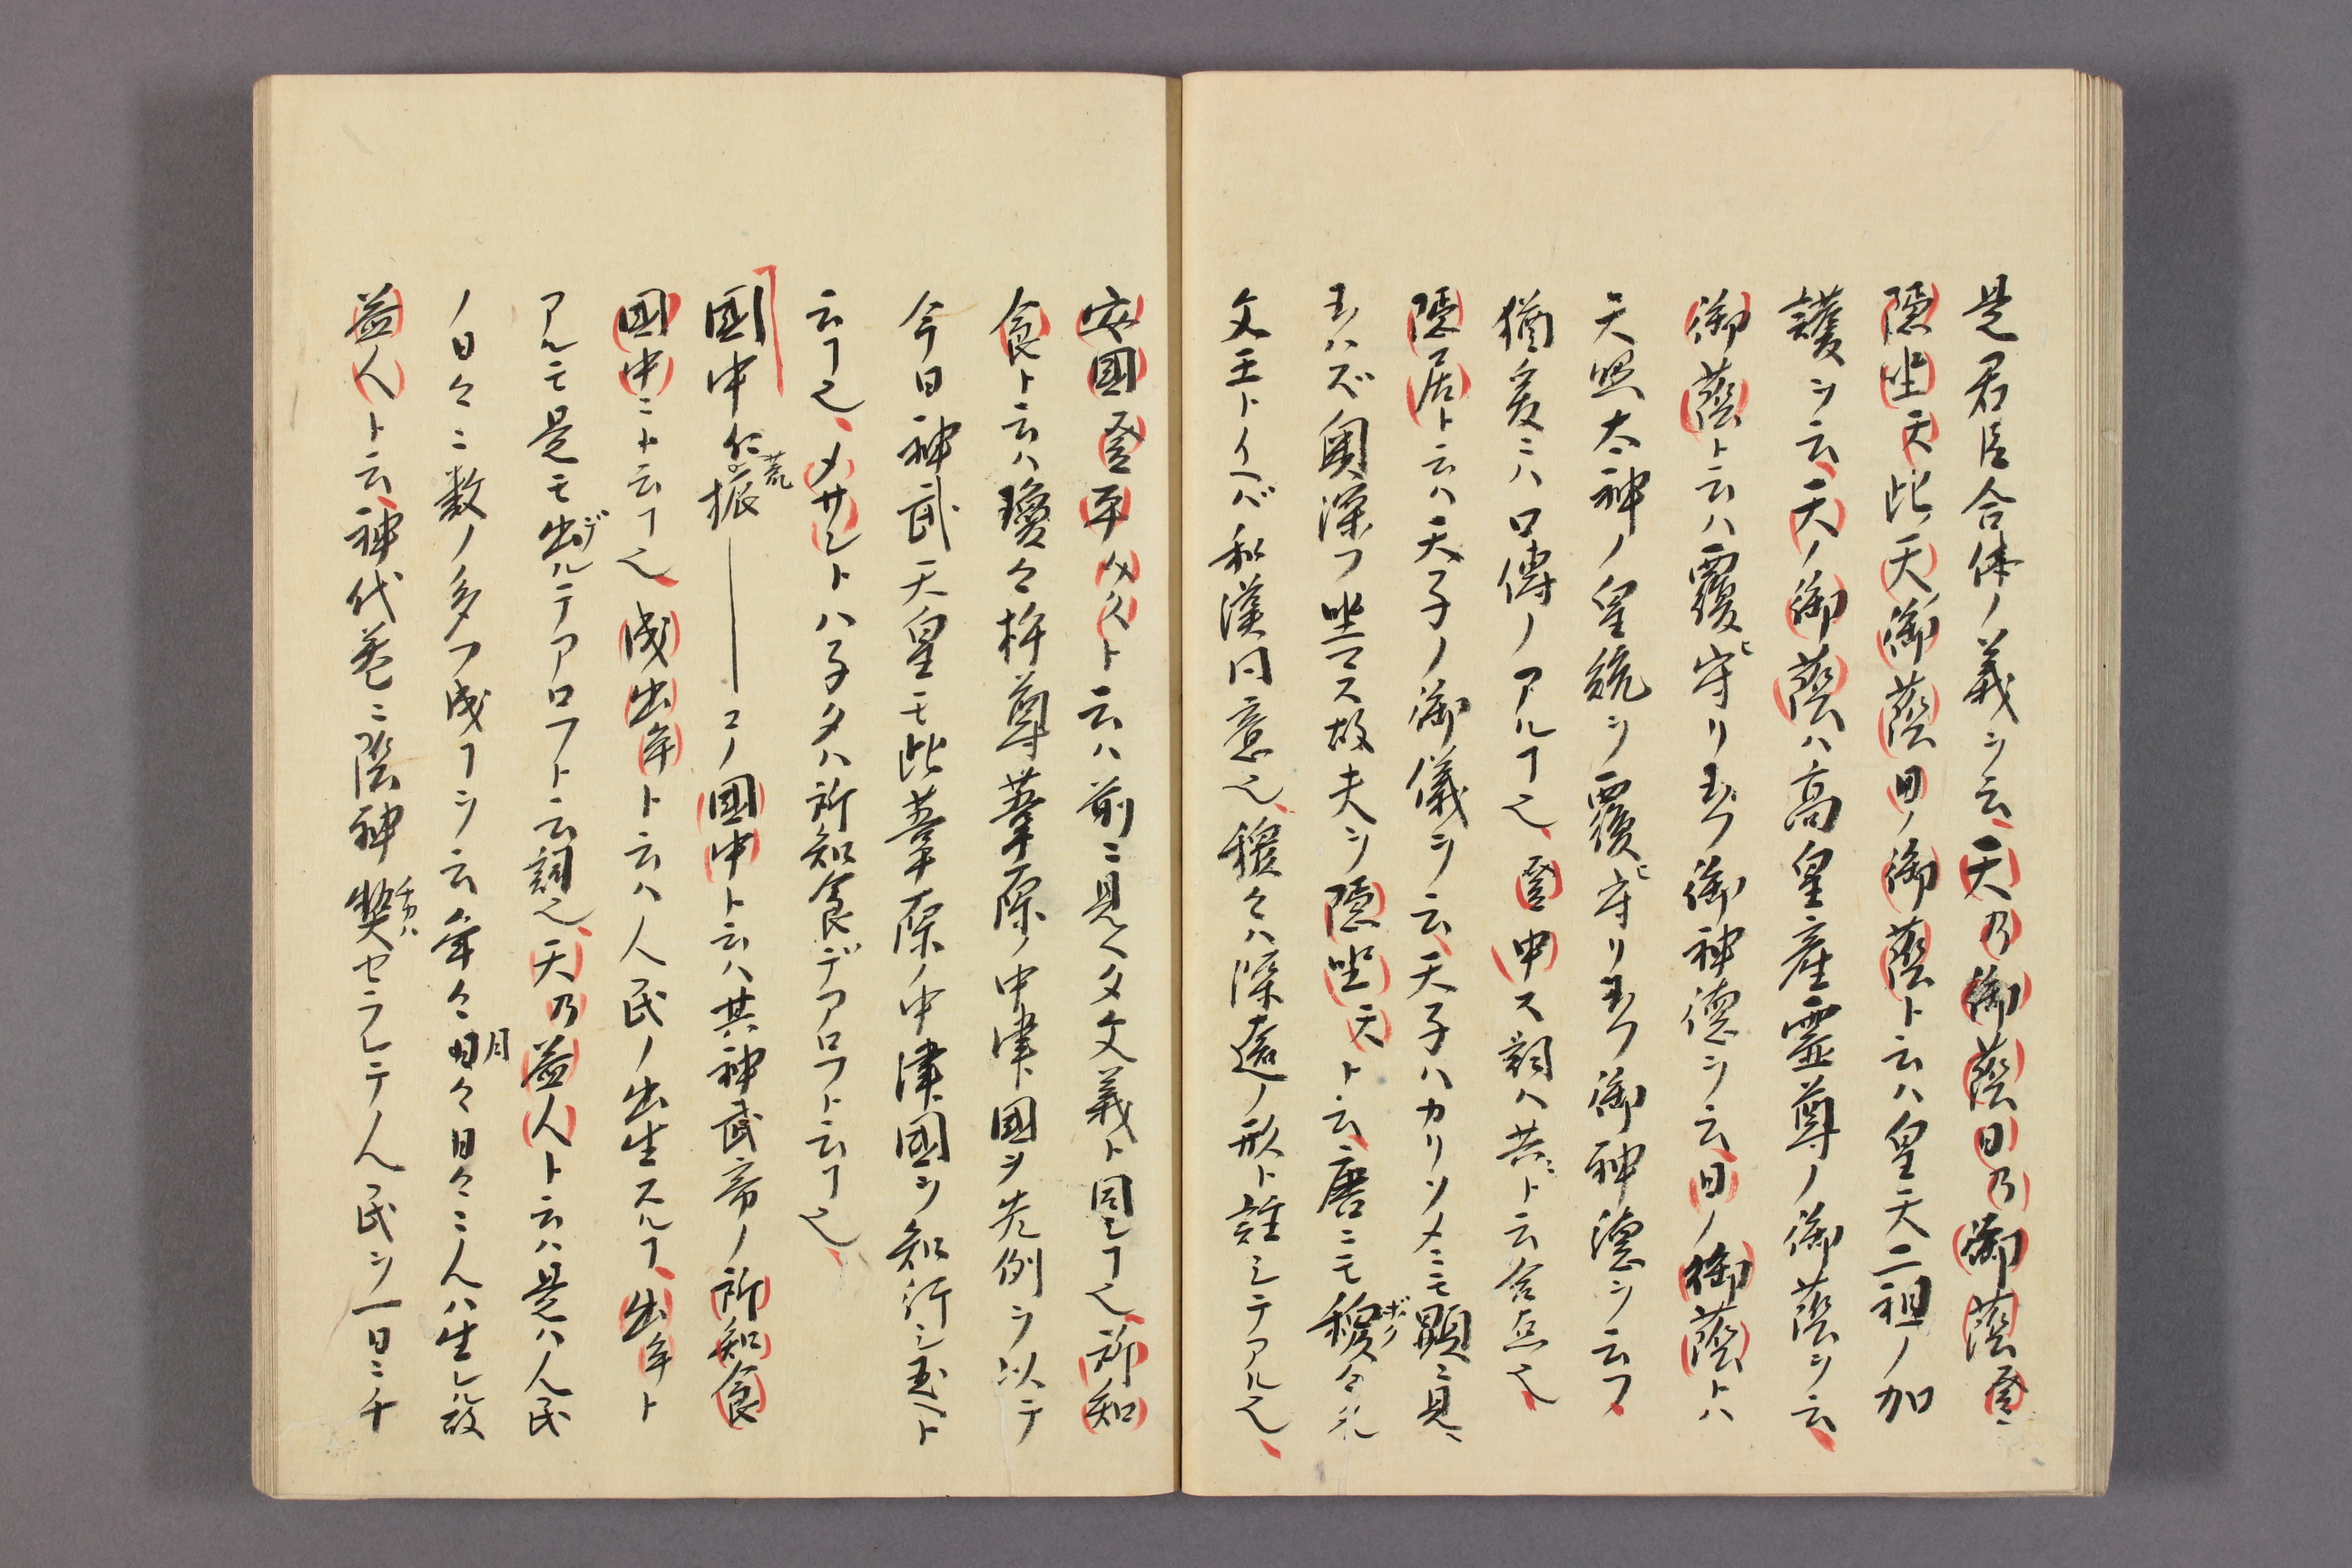 是君臣合体ノ義ヲ云天乃御蔭日乃御蔭登
隠坐天此天御蔭日ノ御蔭ト云ハ皇天二祖ノ加
護ヲ云天ノ御蔭ハ高皇産霊尊ノ御蔭ヲ云
御蔭ト云ハ覆ヒ守リ玉フ御神徳ヲ云日ノ御蔭トハ
天照太神ノ皇統ヲ覆ヒ守リ玉フ御神徳ヲ云フ
猶爰ニハ口傳ノアルヿ也登申ス詞ハ共ニト云合点也
隠居ト云ハ天子ノ御儀ヲ云天子ハカリソメニモ顕ニ見ヘ
玉ハズ奥深フ坐マス故夫ヲ隠坐天ト云唐ニモ穆々
文王トイヘバ和漢同意也穆々ハ深遠ノ形ト註シテアル也
安國登平ケクト云ハ前ニ見ヘタ文義ト同シヿ也所知
食ト云ハ瓊々杵尊葦原ノ中津國ヲ先例ヲ以テ
今日神武天皇モ此葦原ノ中津國ヲ知行シ玉ヘト
云フヿ也メサントハ子タハ所知食デアロフト云ヿ也
國中仁荒振――コノ國中ト云ハ其神武帝ノ所知食
國中ニト云ヿ也成出牟ト云ハ人民ノ出生スルヿ出牟ト
アルモ是モ出ルデアロフト云詞也天乃益人ト云ハ是ハ人民
ノ日々ニ数ノ多フ成ヿヲ云年々月々日々ニ人ハ生レ殺
益人ト云神代巻ニ陰神契チカハセラレテ人民ヲ一日ニ千